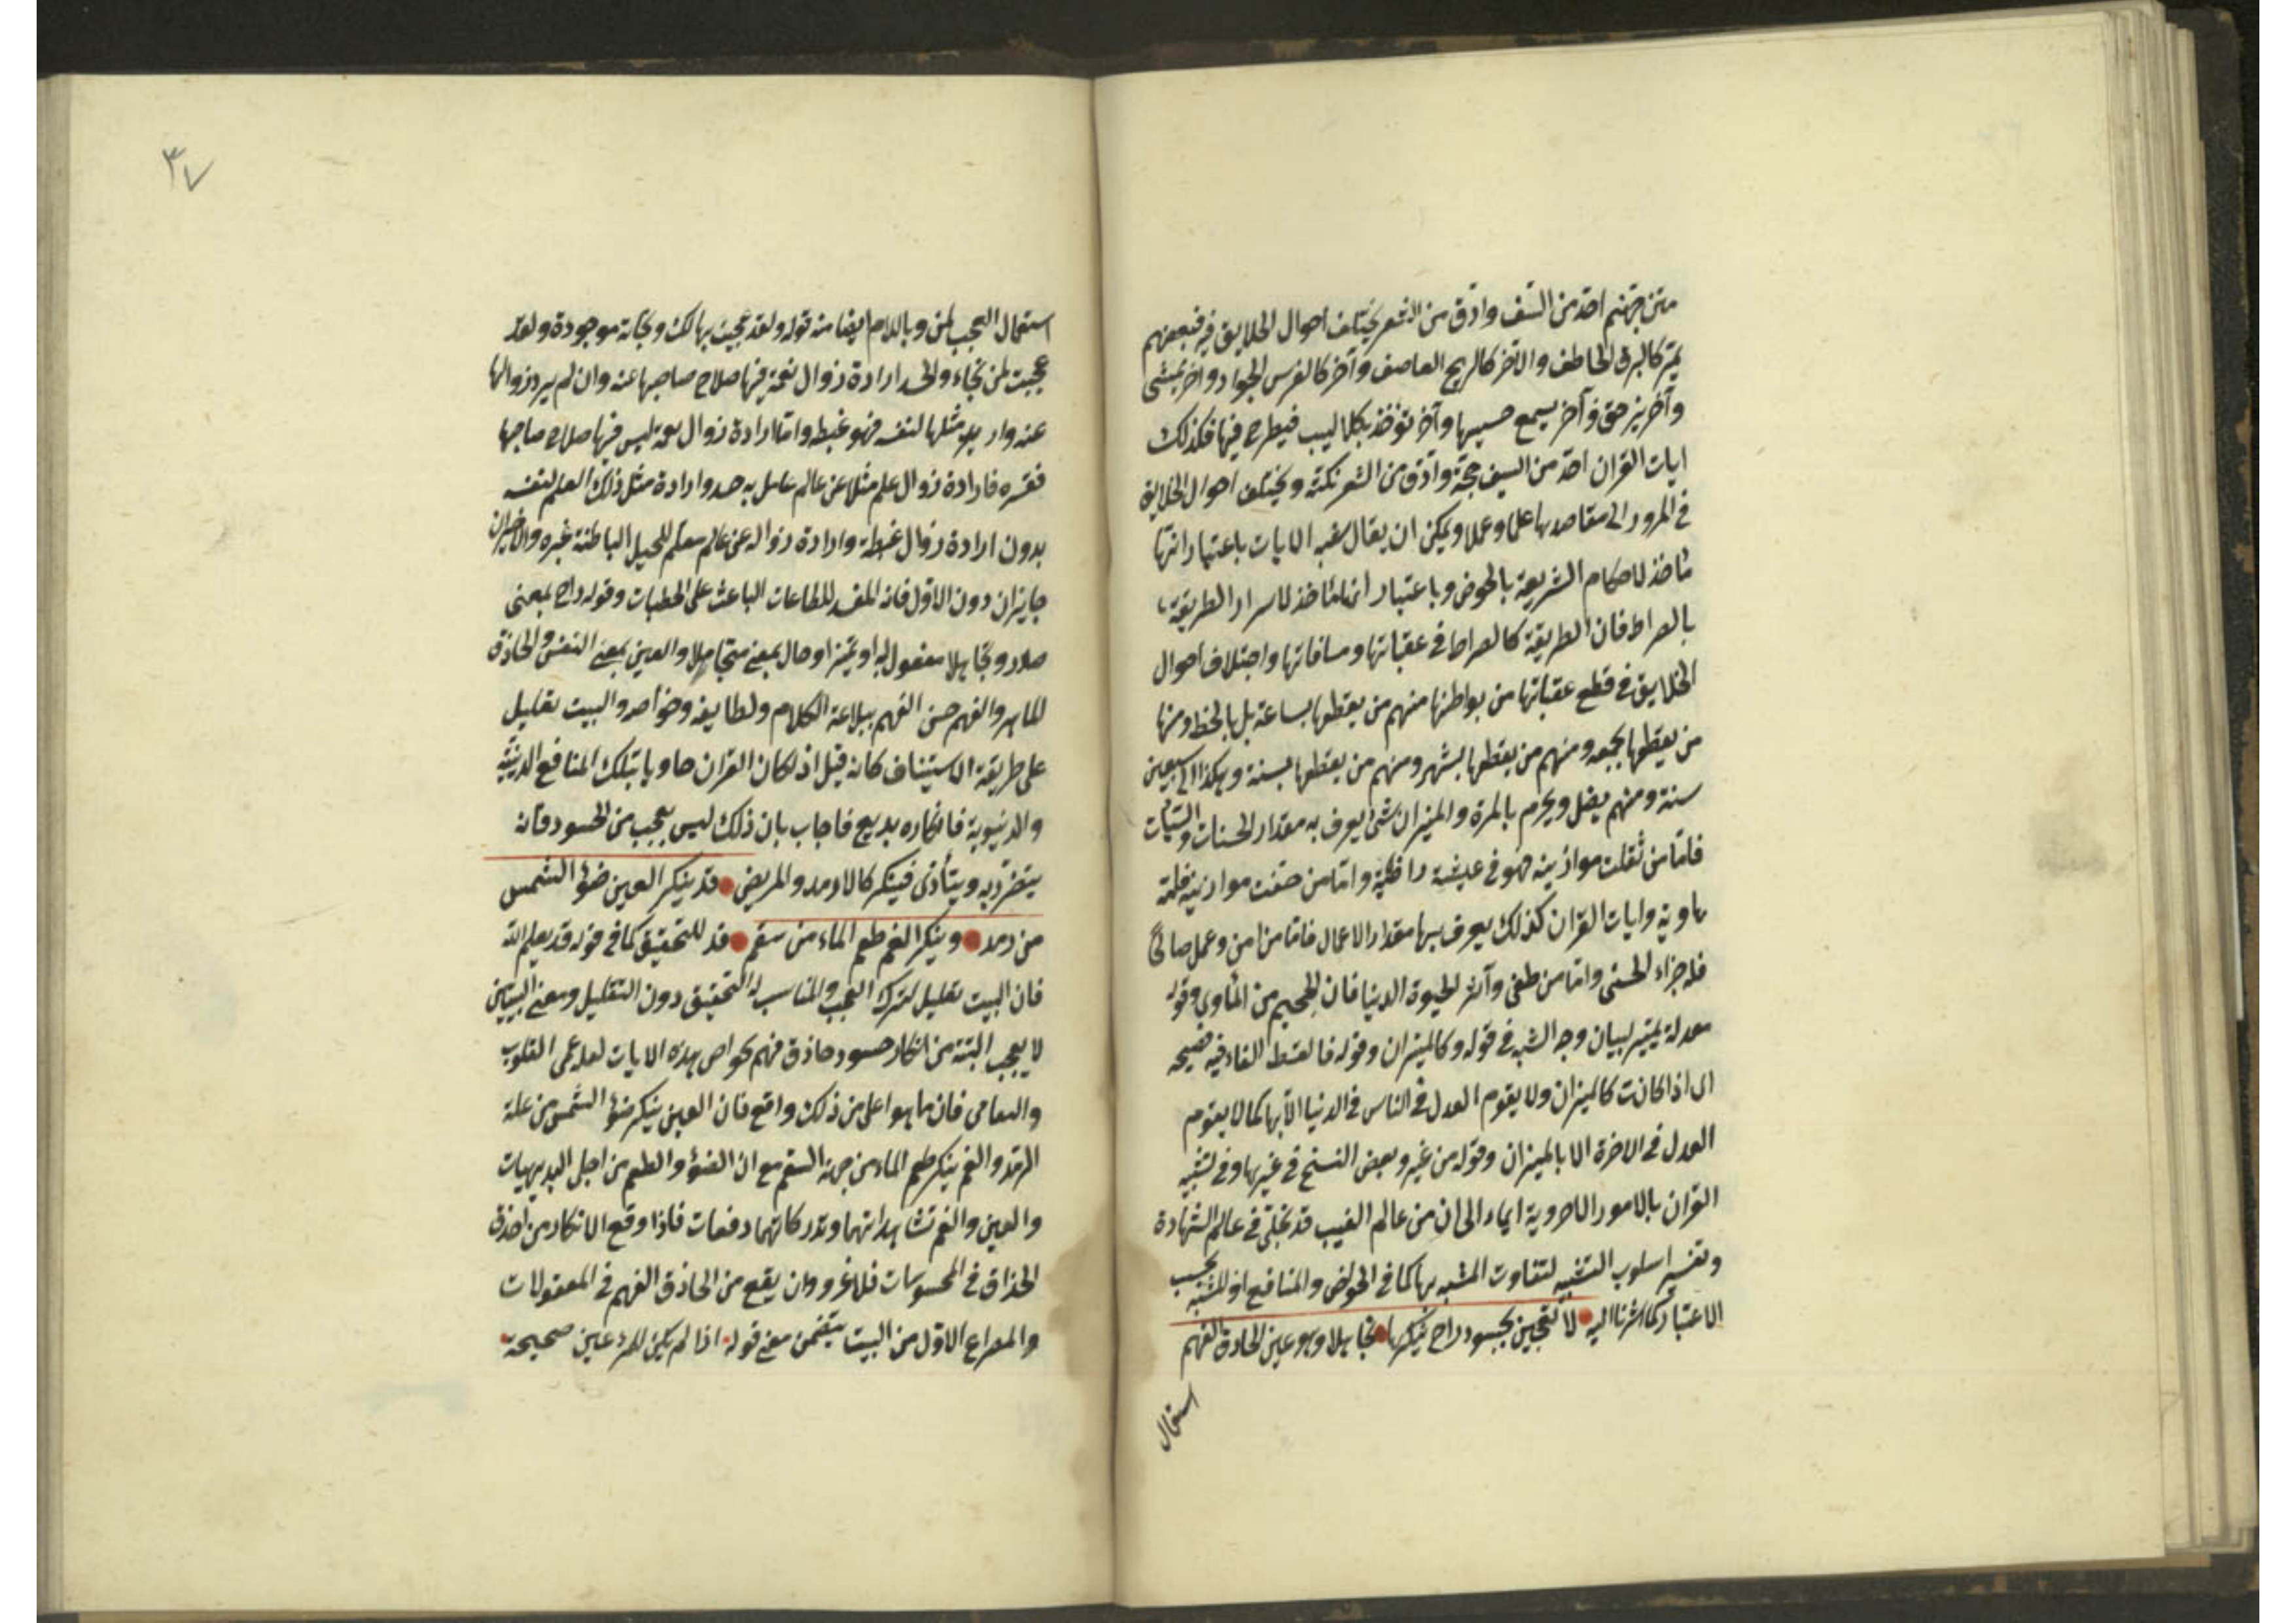 متن جهنم احد من السيف وادق من الشعر يختلف احوال الخلايق فيه فبعضهم
يمر كالبرق الخاطف والاخر كالريح العاصف وآخر كالفرس الجواد وآخر يمشى
وآخر يزحق وآخر يسمع حسيسها وآخر تؤخذ بكلاليب فيطرح فيها فكذلك
ايات القران احد من السيف حجة وادق من الشعر نكتة ويختلف احوال الخلايق
فى المرور الى مقاصدها علما وعملا ويمكن ان يقال شبه الايات باعتبار انها
مأخذ لاحكام الشريعة بالحوض وباعتبار انها مأخذ لاسرار الطريقة
بالصراط فان الطريقة كالصراط فى عقباتها ومسافاتها واختلاف احوال
الخلايق فى قطع عقباتها من بواطنها منهم من يقطعها بساعة بل بالحظ ومنها
من يقطعها بجمعه ومنهم من يقطعها بشهر ومنهم من يقطعها بسنة وهكذا الى سبعين
سنة ومنهم يضل ويحرم بالمرة والميزان شئ يعرف به مقدار الحسنات والسيئات
فاما من ثقلت موازينه فهو فى عيشة راضية واما من خفت موازينه فامه
هاوية وايات القران كذلك يعرف بها مقدار الاعمال فاما من امن وعمل صالحا
فله جزاء الحسنى واما من طغى وآثر الحيوة الدنيا فان الجحيم من المأوى وقوله
معدلة تمييز لبيان وجه الشبه فى قوله وكالميزان وقوله فالقسط الفاء فيه فصيحه
اى اذا كانت كالميزان ولا يقوم العدل فى الناس فى الدنيا الا بها كما لا يقوم
العدل فى الاخرة الا بالميزان وقوله من غيره وبعض النسخ فى غيرها وفى تشبيه
القران بالامور الاخروية ايماء الى ان من عالم الغيب قد تجلى فى عالم الشهادة
اسلوب التشبيه لتفاوت المشبه بها كما فى الحوض والمنافع او للمشبه بحسب
الاعتبار كما اشرنا اليه لا تعجبن لحسود راح ينكرها تجاهلا وهو عين الحاذق الفهم
استعمال
٣٧
استعمال العجب لمن وباللام ايضا منه قوله ولقد عجبت بهالك ونجاته موجودة ولقد
عجبت لمن نجاء والحسد ارادة زوال نعمة فيها صلاح صاحبها عنه وان لم يرد زوالها
عنه واريد مثلها لنفسه فهو غبطه واما ارادة زوال نعمة ليس فيها صلاح صاحبها
فغيره فارادة زوال علم مثلا عن عالم عامل به حسد وارادة مثل ذلك العلم لنفسه
بدون ارادة زوال غبطة وارادة زواله عن عالم معلم للحيل الباطنة غيره والاخيران
جايزان دون الاول فانه المفسد للطاعات الباعث على الخطيات وقوله راح بمعنى
صار وتجاهلا مفعول له او تميز او حال بمعنى متجاهلا والعين بمعنى النفس والحاذق
الماهر والفهم حسن الفهم ببلاغة الكلام ولطايفه وخواصه والبيت تعليل
على طريقة الاستيناف كانه قيل اذا كان القران حاويا بتلك المنافع الدينية
والدنيوية فانكاره بديع فاجاب بان ذلك ليس بعجب من الحسود فانه
يتضرر به ويتأذى فينكر كالارمد والمريض قد ينكر العين ضوء الشمس
من رمد وينكر الفم طعم الماء من سقم قد للتحقيق كما فى قوله قد يعلم الله
فان البيت تعليل لترك العجب والمناسب له التحقيق دون التقليل ومعنى البيتين
لا يعجب البتة من انكار حسود حاذق فهم لخواص هذه الايات لعله عمى القلوب
والتعامى فان ما هو اعلى من ذلك واقع فان العين ينكر ضوء الشمس من علة
الرمد والفم ينكر طعم الماء من جهة السقم مع ان الضوء والطعم من اجل البديهيات
والعين والفم تشاهدانهما وتدركانهما دفعات فاذا وقع الانكار من احذق
الحذاق فى المحسوسات فلا غرو وان يقع من الحاذق الفهم فى المعقولات
والمصراع الاول من البيت يتضمن معنى قوله اذا لم يكن للمرء عين صحيحة